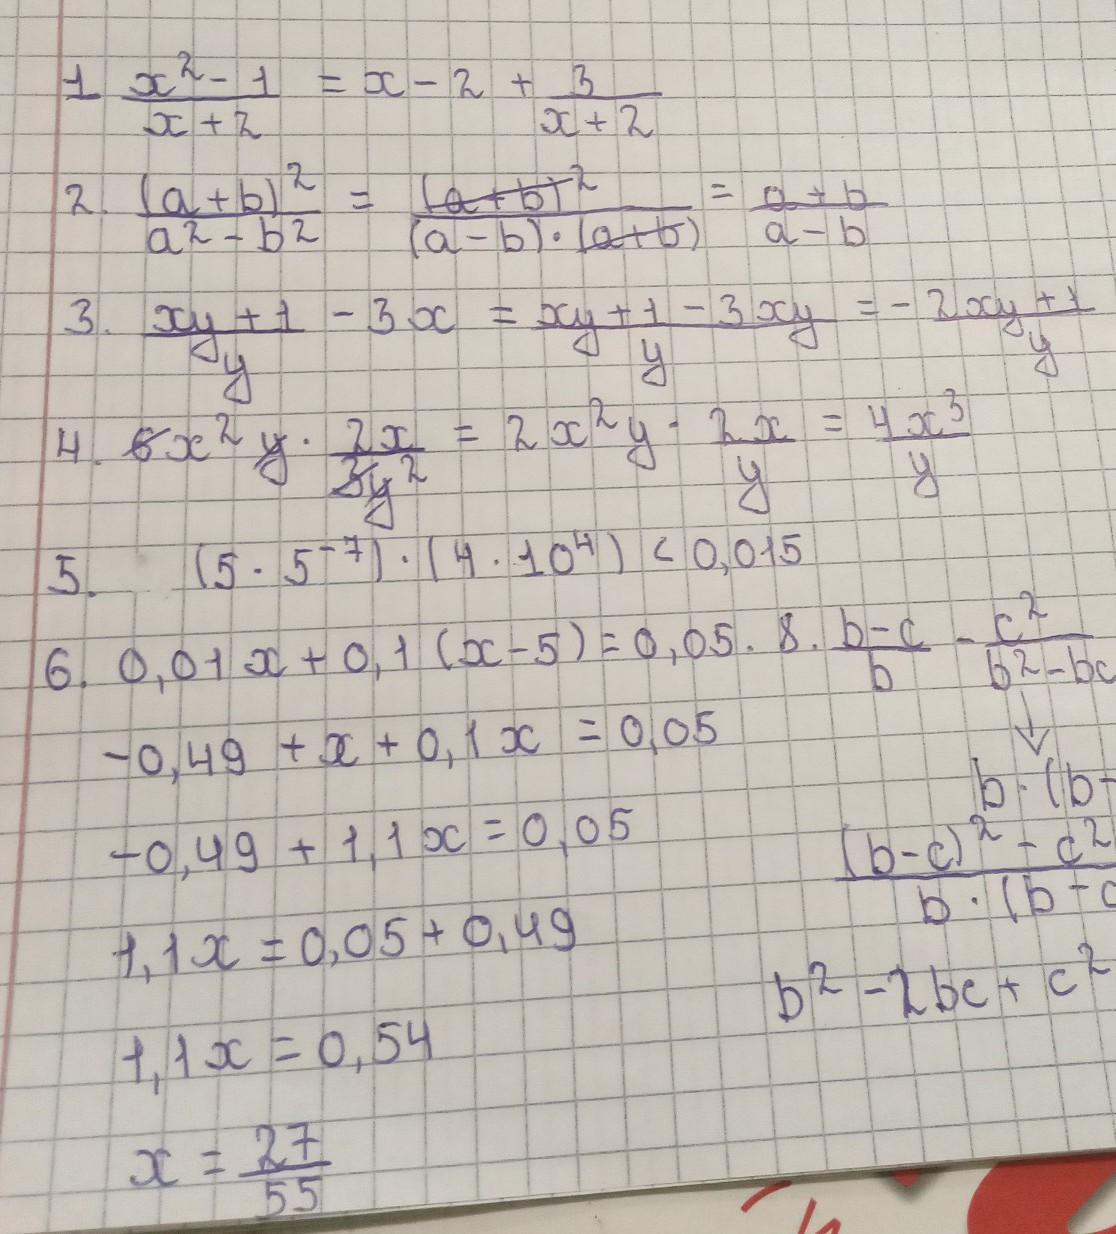 1 x² - 1 / x + 2 = x - 2 + 3 / x + 2
2. (a+b)² / a² - b² = (a+b)² / (a-b)·(a+b) = a+b / a-b
3. xy+1 / y - 3x = xy+1-3xy / y = -2xy+1 / y
4. 6x²y · 2x / 3y² = 2x²y · 2x / y = 4x³ / y
5. (5·5⁻⁷)·(4·10⁴) < 0,015
6. 0,01x + 0,1(x-5) = 0,05.
-0,49 + x + 0,1x = 0,05
-0,49 + 1,1x = 0,05
1,1x = 0,05 + 0,49
1,1x = 0,54
x = 27 / 55
8. b-c / b - c² / b²-bc
↓
b·(b-
(b-c)² - c² / b·(b-c
b² - 2bc + c²